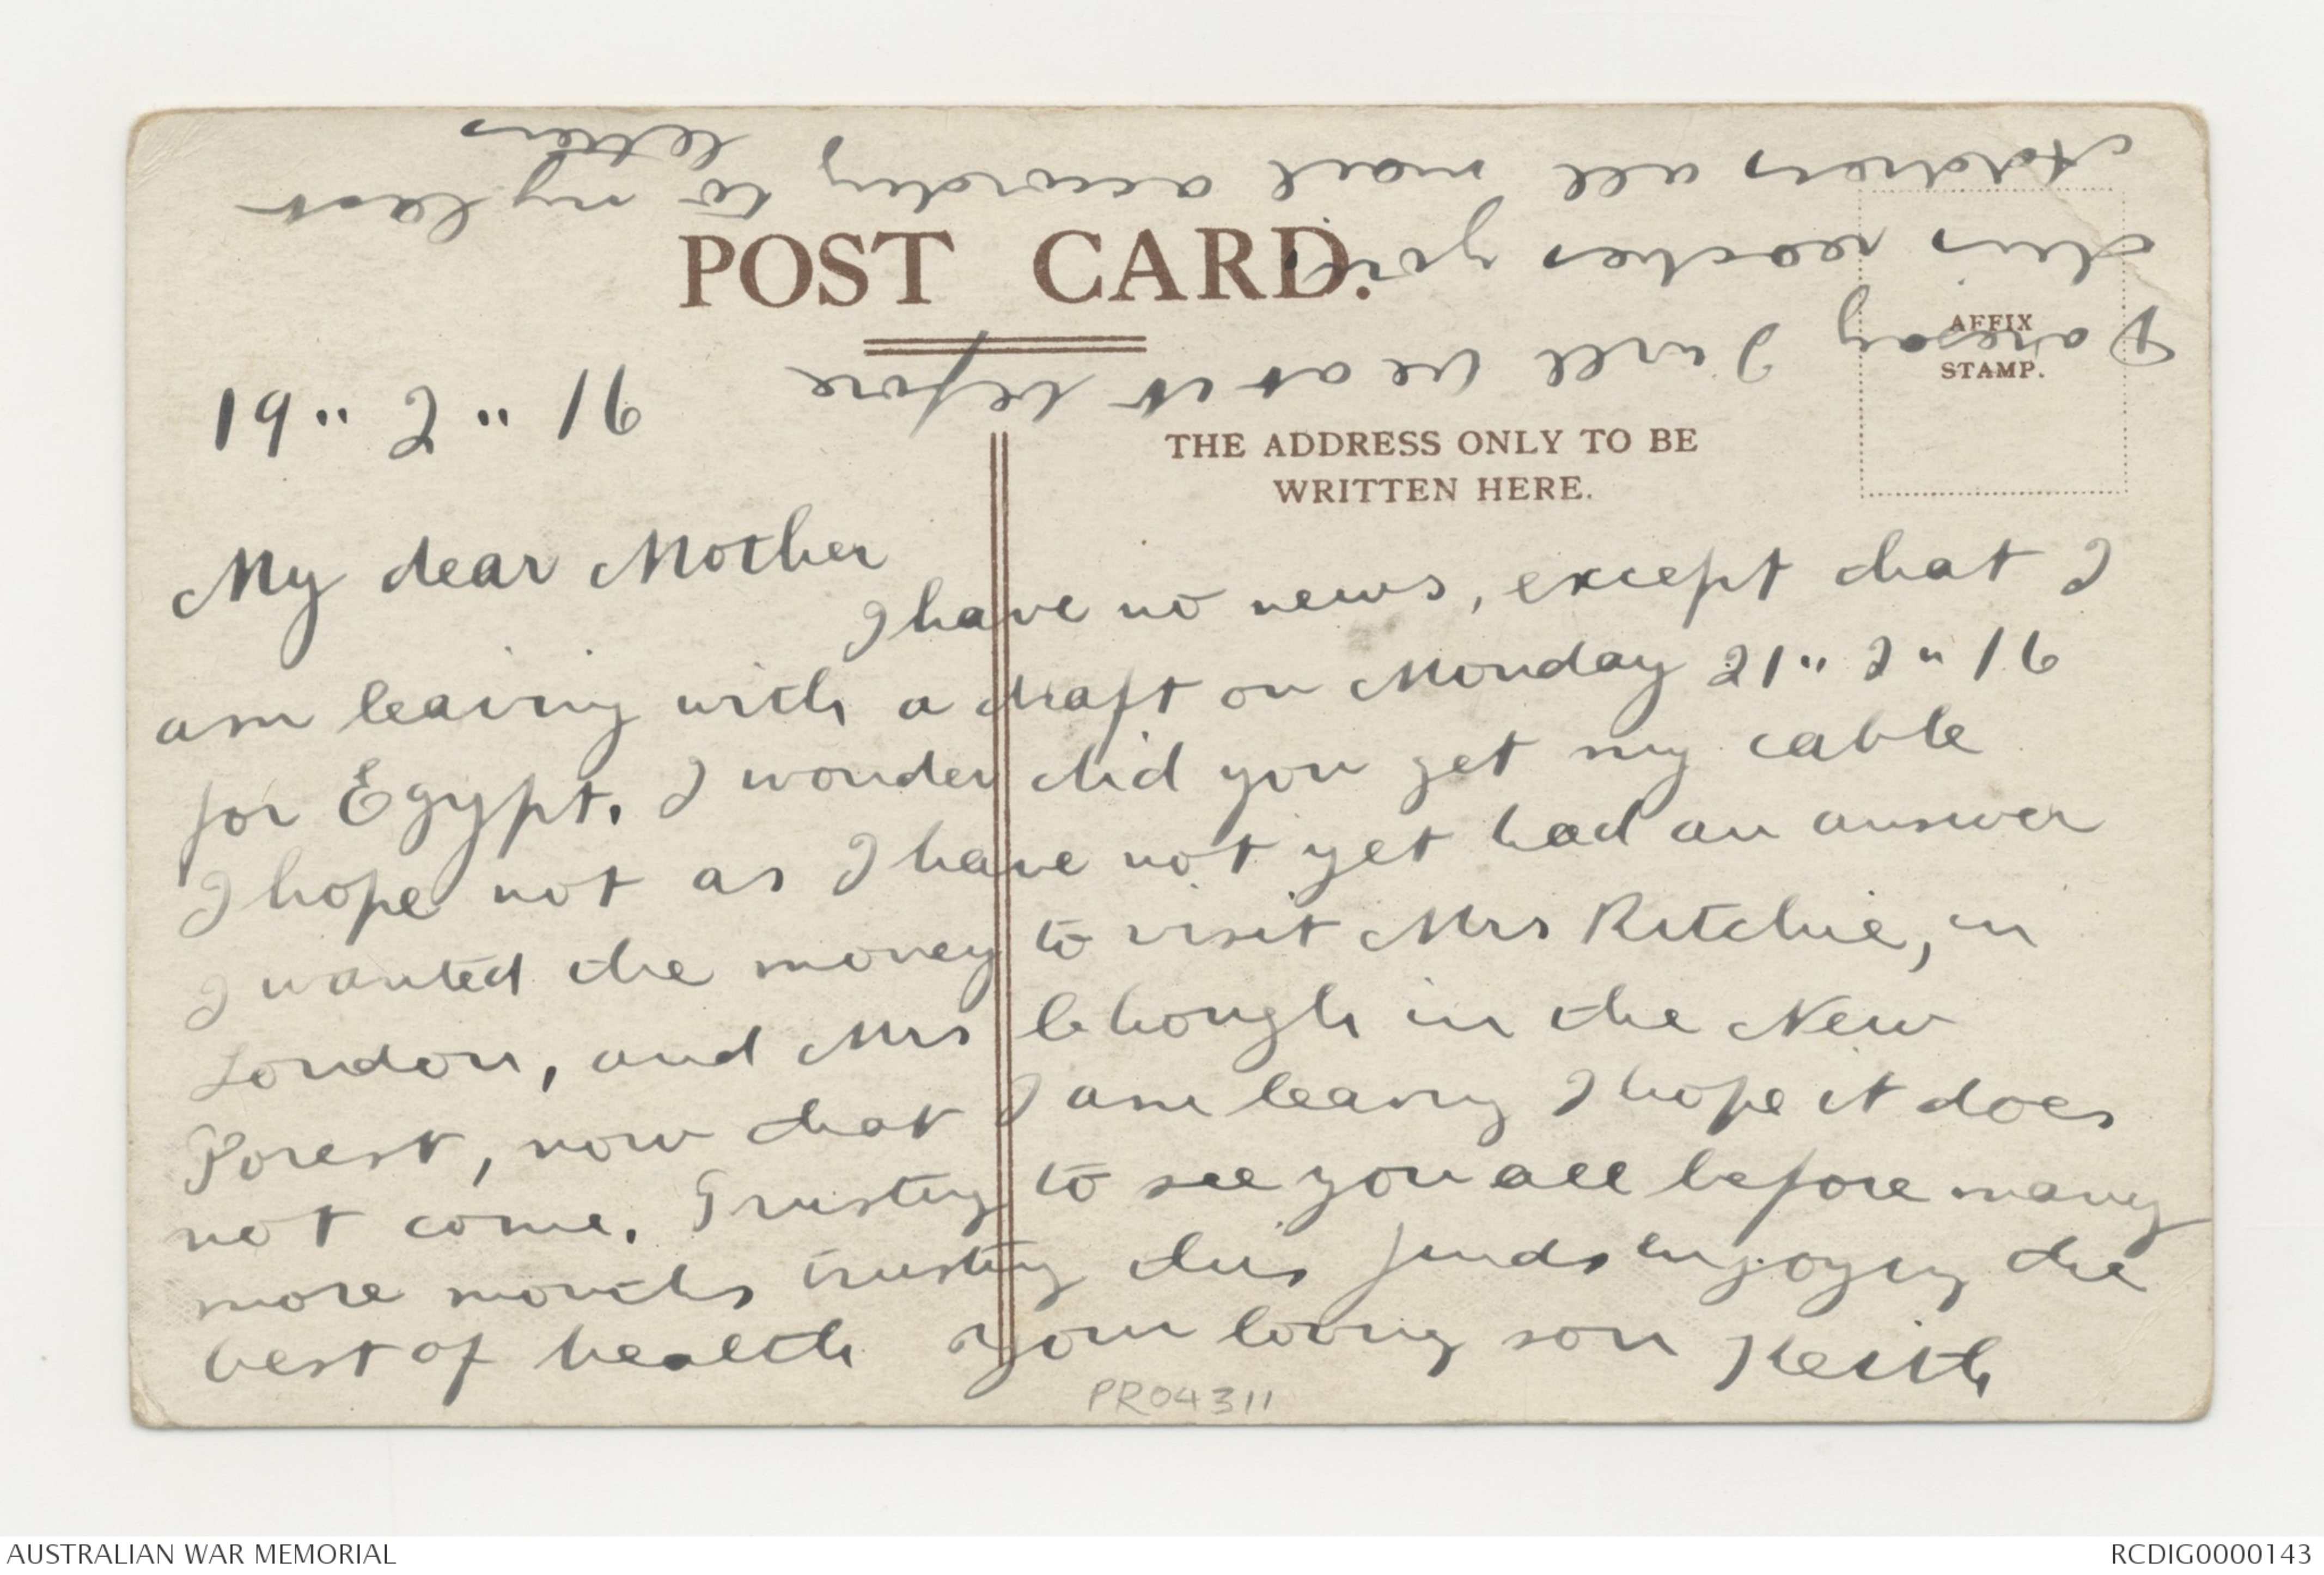 POST CARD.
AFFIX
STAMP.
THE ADDRESS ONLY TO BE
WRITTEN HERE.
19" 2 " 16
My dear Mother
I have no news, except that I
am leaving with a draft on Monday 21" 2 " 16
for Egypt. I wonder did you get my cable
I hope not as I have not yet had an answer
I wanted the money to visit Mrs Ritchie, in
London, and Mrs in the New
Forest, now that I am leaving I hope it does
not come. Trusting to see you all before many
more months trusting this finds enjoying the
best of health Your loving son Keith
Daresay I will be at it before
this reaches you.
Address all mail according to my last
letters
PR04311
AUSTRALIAN WAR MEMORIAL
RCDIG0000143